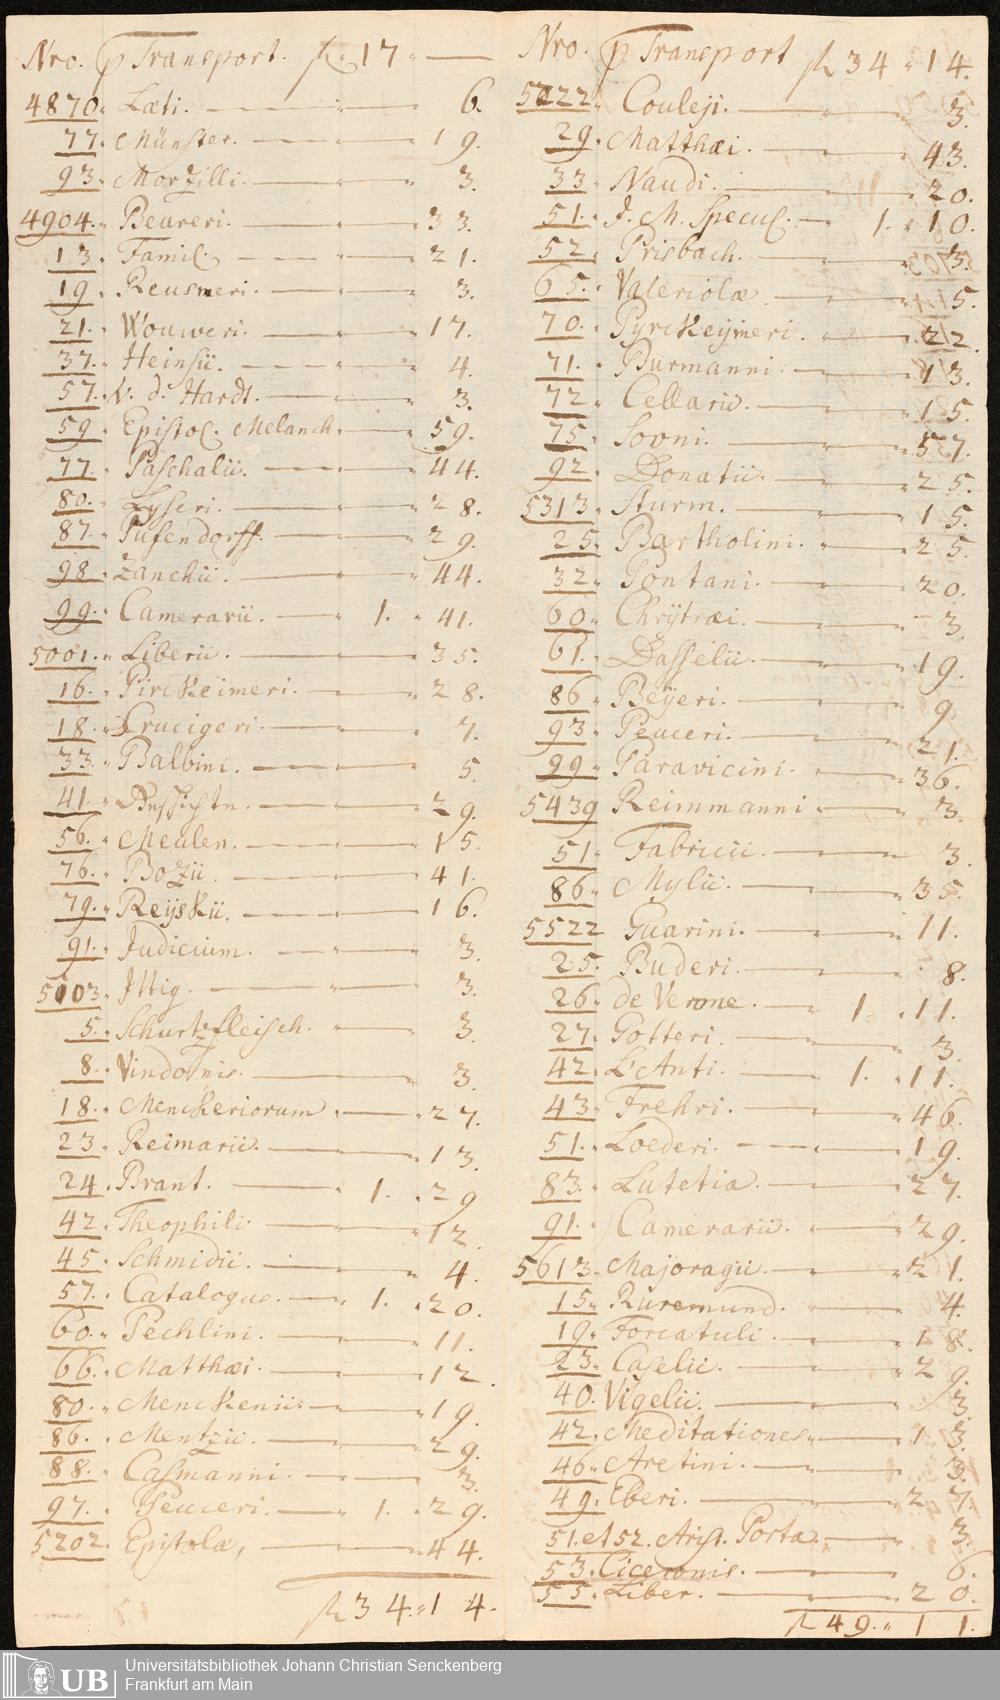 Nro. p Transport. fl. 17 " —
4870. Læti. — " — 6.
77. Münster. — " — 19.
93. Morzilli. — " — 3.
4904. Beureri. — " — 33.
13. Famil. — " — 21.
19. Reusneri. — " — 3.
21. Wouweri. — " — 17.
37. Heinsii. — " — 4.
57. V. d. Hardt. — " — 3.
59. Epistol. Melanch. — " 59.
77. Paschalii. — " — 44.
80. Lyseri. — " — 28.
87. Pufendorff. — " — 29.
98. Zanchii. — " — 44.
99. Camerarii. — " 1. " 41.
5001. Liberii. — " — 35.
16. Pirckeimeri. — " — 28.
18. Crucigeri. — " — 7.
33. Balbini. — " — 5.
41. — " — 29.
56. Meulen. — " — 15.
76. Bozii. — " — 41.
79. Reijskii. — " — 16.
91. Judicium. — " — 3.
5103. Ittig. — " — 3.
5. Schurtzfleisch. — " — 3.
8. Vindonis. — " — 3.
18. Menckeriorum. — " 27.
23. Reimarii. — " — 13.
24. Brant. — 1. " 29
42. Theophili — " — 12.
45. Schmidii. — " — 4.
57. Catalogus. — " 1. " 20.
60. Pechlini. — " — 11.
66. Matthæi. — " — 12.
80. Menckenii. — " — 19.
86. Mentzii. — " — 29.
88. Casmanni. — " — 3.
97. Peuceri. — " 1. " 29.
5202. Epistola, — " — 44.
fl. 34. " 14.
Nro. p Transport fl. 34 " 14.
5222. Couleji. — " — 3.
29. Matthæi. — " — 43.
33. Naudi. — " — 20.
51. J. M. Specul. — 1. " 10.
52. Prisbach. — " — 3.
65. Valeriolæ. — " — 5.
70. Pyrckeijmeri. — " — 22.
71. Burmanni. — " — 13.
72. Cellarii. — " — 15.
75. — " — 57.
92. Donatii. — " — 25.
5313. Sturm. — " — 15.
25. Bartholini. — " — 25.
32. Pontani. — " — 20.
60. Chrijtræi. — " — 3.
61. Dasselii. — " — 19.
86. Beijeri. — " — 9
93. Peuceri. — " — 21.
99. Paravicini. — " — 36.
5439 Reimmanni. — " — 3.
51. Fabricii. — " — 3.
86. Mylii. — " — 35.
5522 Guarini. — " — 11.
25. Buderi. — " — 8.
26. de Verone. — 1. " 11.
27. Gotteri. — " — 3.
42. L'Anti. — 1. " 11.
43. Frehri. — " — 46.
51. Loederi. — " — 19.
83. Lutetia. — " — 27.
91. Camerarii. — " — 29.
5613. Majoragii. — " — 21.
15. Ruremund. — " — 4.
19. Forcatuli. — " — 18.
23. Caselii. — " — 29.
40. Vigelii. — " — 3.
42. Meditationes. — " — 13.
46. Aretini. — " — 3.
49. Eberi. — " — 27.
51. et 52. Arist. Porta. — 3.
53. Ciceronis. — " — 6.
55. Liber. — " — 20.
fl. 49. " 11.
UB Universitätsbibliothek Johann Christian Senckenberg
Frankfurt am Main